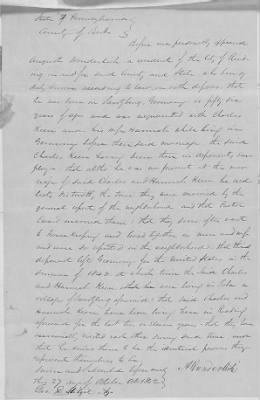 State of Pennsylvania
County of Berks S
Before me personally appeared
August Wunderlich a resident of the City of Read-
ing, in and for said County and State who being
duly sworn according to law, on oath deposes that
he was born in Germany is fifty six
years of age and was acquainted with Charles
Keen and his wife Hannah while living in
Germany before their said marriage the said
Charles Keen having been then in deponent's em-
ploy, that altho he was not present at the mar-
riage of said Charles and Hannah Keen he can
testify to the time they were married by the
general report of the neighborhood and that Pastor
married them, that they soon after went
to housekeeping and lived together as man and wife
and were so reputed in the neighborhood that this
deponent left Germany for the United States in the
summer of at which time the said Charles
and Hannah Keen were living in
village of aforesaid that said Charles and
Hannah Keen have been living here in Reading
aforesaid for the last ten or eleven years that they have
visited each other during said time and
that he knows them to be the identical persons they
represent themselves to be
Sworn and subscribed before me
this 27 day of October
A Wunderlich